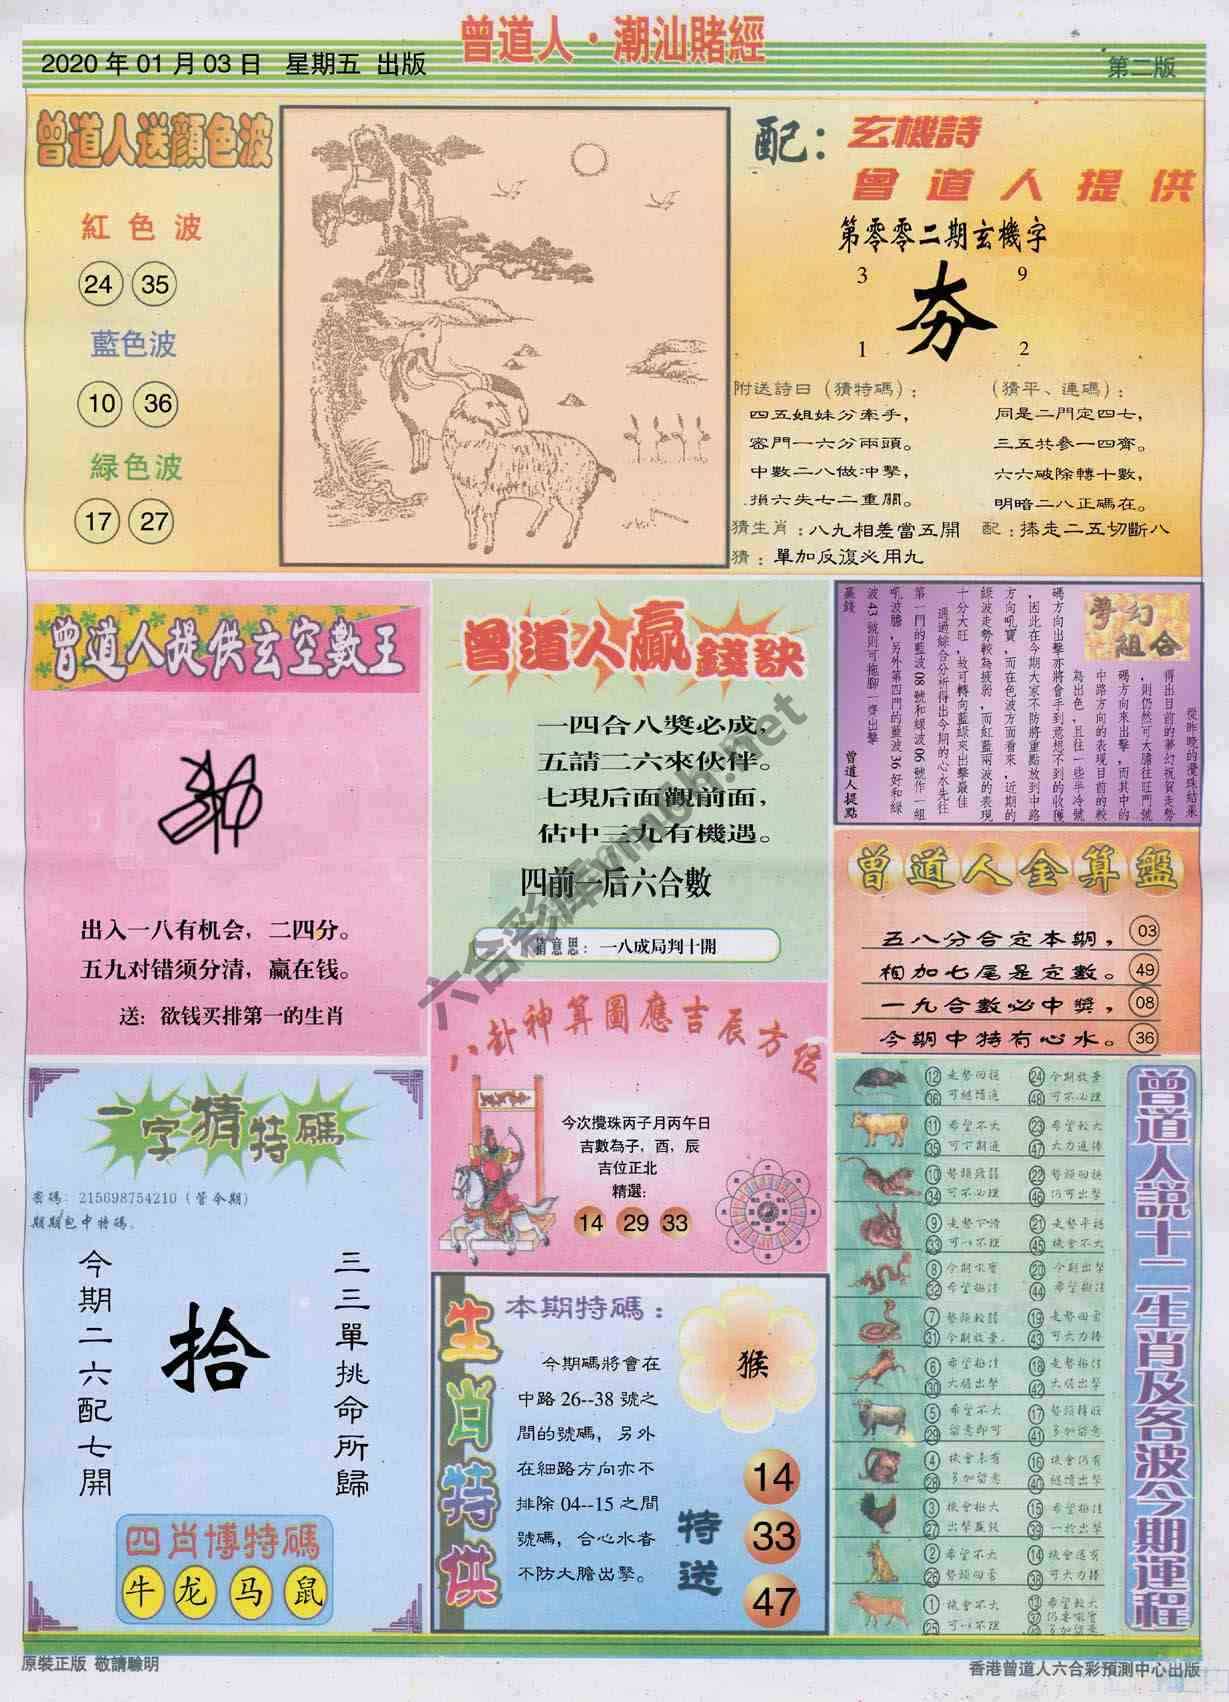 曾道人·潮汕賭經
2020年01月03日 星期五 出版
第二版
曾道人送顏色波
紅色波
24 35
藍色波
10 36
緑色波
17 27
配：玄機詩
曾道人提供
第零零二期玄機字
3 9
夯
1 2
附送詩曰（猜特碼）：
四五姐妹分牽手，
密門一六分兩頭。
中數二八做冲擊，
損六失七二重關。
（猜平、連碼）：
同是二門定四七，
三五共參一四齊。
六六破除轉十數，
明暗二八正碼在。
猜生肖：八九相差當五開
配：捧走二五切斷八
猜：單加反復必用九
曾道人提供玄空數王
出入一八有机会，二四分。
五九对错须分清，赢在钱。
送：欲钱买排第一的生肖
曾道人贏錢訣
一四合八獎必成，
五請二六來伙伴。
七現后面觀前面，
估中三九有機遇。
四前一后六合數
猜意思：一八成局判十開
夢幻組合
從昨晚的攪珠結果
得出目前的夢幻祝賀走勢
，則仍然可大膽往旺門號
碼方向來出擊，而其中的
中路方向的表現目前的較
為出色，且往一些半冷號
碼方向出擊亦將會手到意想不到的收穫
，因此在今期大家不防將重點放到中路
方向吼寶，而在色波方面看來，近期的
綠波走勢較為疲弱，而紅藍兩波的表現
十分大旺，故可轉向藍綠來出擊最佳
。通過綜合分析得出今期的心水先往
第一門的藍波08號和綠波06號作一組
吼波膽，另外第四門的藍波36好和綠
波43號則可拖腳一齊出擊
贏錢
曾道人提點
曾道人金算盤
五八分合定本期， 03
相加七尾是定數。 49
一九合數必中獎， 08
今期中特有心水。 36
八卦神算圖應吉辰方位
今次攪珠丙子月丙午日
吉數為子，酉，辰
吉位正北
精選：
14 29 33
一字猜特碼
密碼：215698754210（管今期）
期期包中特碼。
今期二六配七開
拾
三三單挑命所歸
四肖博特碼
牛 龙 马 鼠
生肖特供
本期特碼：
今期碼將會在
中路26--38號之
間的號碼，另外
在細路方向亦不
排除04--15之間
號碼，合心水者
不防大膽出擊。
猴
特送
14
33
47
曾道人說十二生肖及各波今期運程
12 走勢回穩 24 今期放棄
36 可繼續追 48 可不必理
11 希望不大 23 希望較大
35 可下期追 47 大力追捧
10 勢頭疲弱 22 勢頭回穩
34 可不必理 46 仍可出擊
9 走勢下滑 21 走勢平穩
33 可以不理 45 機會不大
8 今期吼寶 20 今期出擊
32 希望極佳 44 希望極佳
7 勢頭較弱 19 走勢回香
31 今期放棄 43 可大力捧
6 希望極佳 18 走勢極佳
30 大膽出擊 42 大膽出擊
5 希望不大 17 勢頭轉旺
29 留意即可 41 多加留意
4 機會未有 16 機會仍有
28 多加留意 40 繼續出擊
3 機會極大 15 希望極佳
27 出擊贏錢 39 一於出擊
2 希望不大 14 機會還有
26 勢頭回香 38 可大力捧
1 機會不大 13 希望較大
25 可以不理 37 仍要吼實
49 多加留意
原裝正版 敬請驗明
香港曾道人六合彩預測中心出版